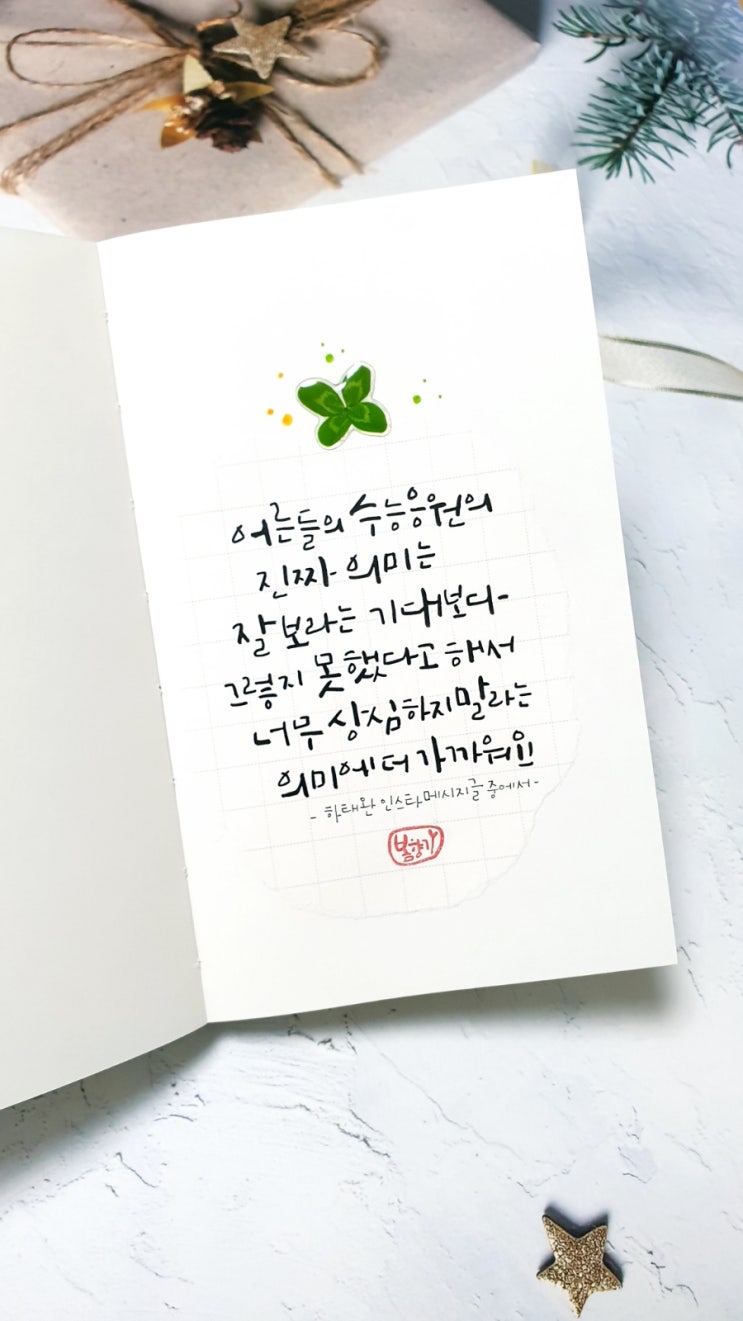 어른들의 수능응원의
진짜 의미는
잘 보라는 기대보다
그렇지 못했다고 해서
너무 상심하지 말라는
의미에 더 가까워요!!
- 하태완 인스타 메시지글 중에서 -
봄향기